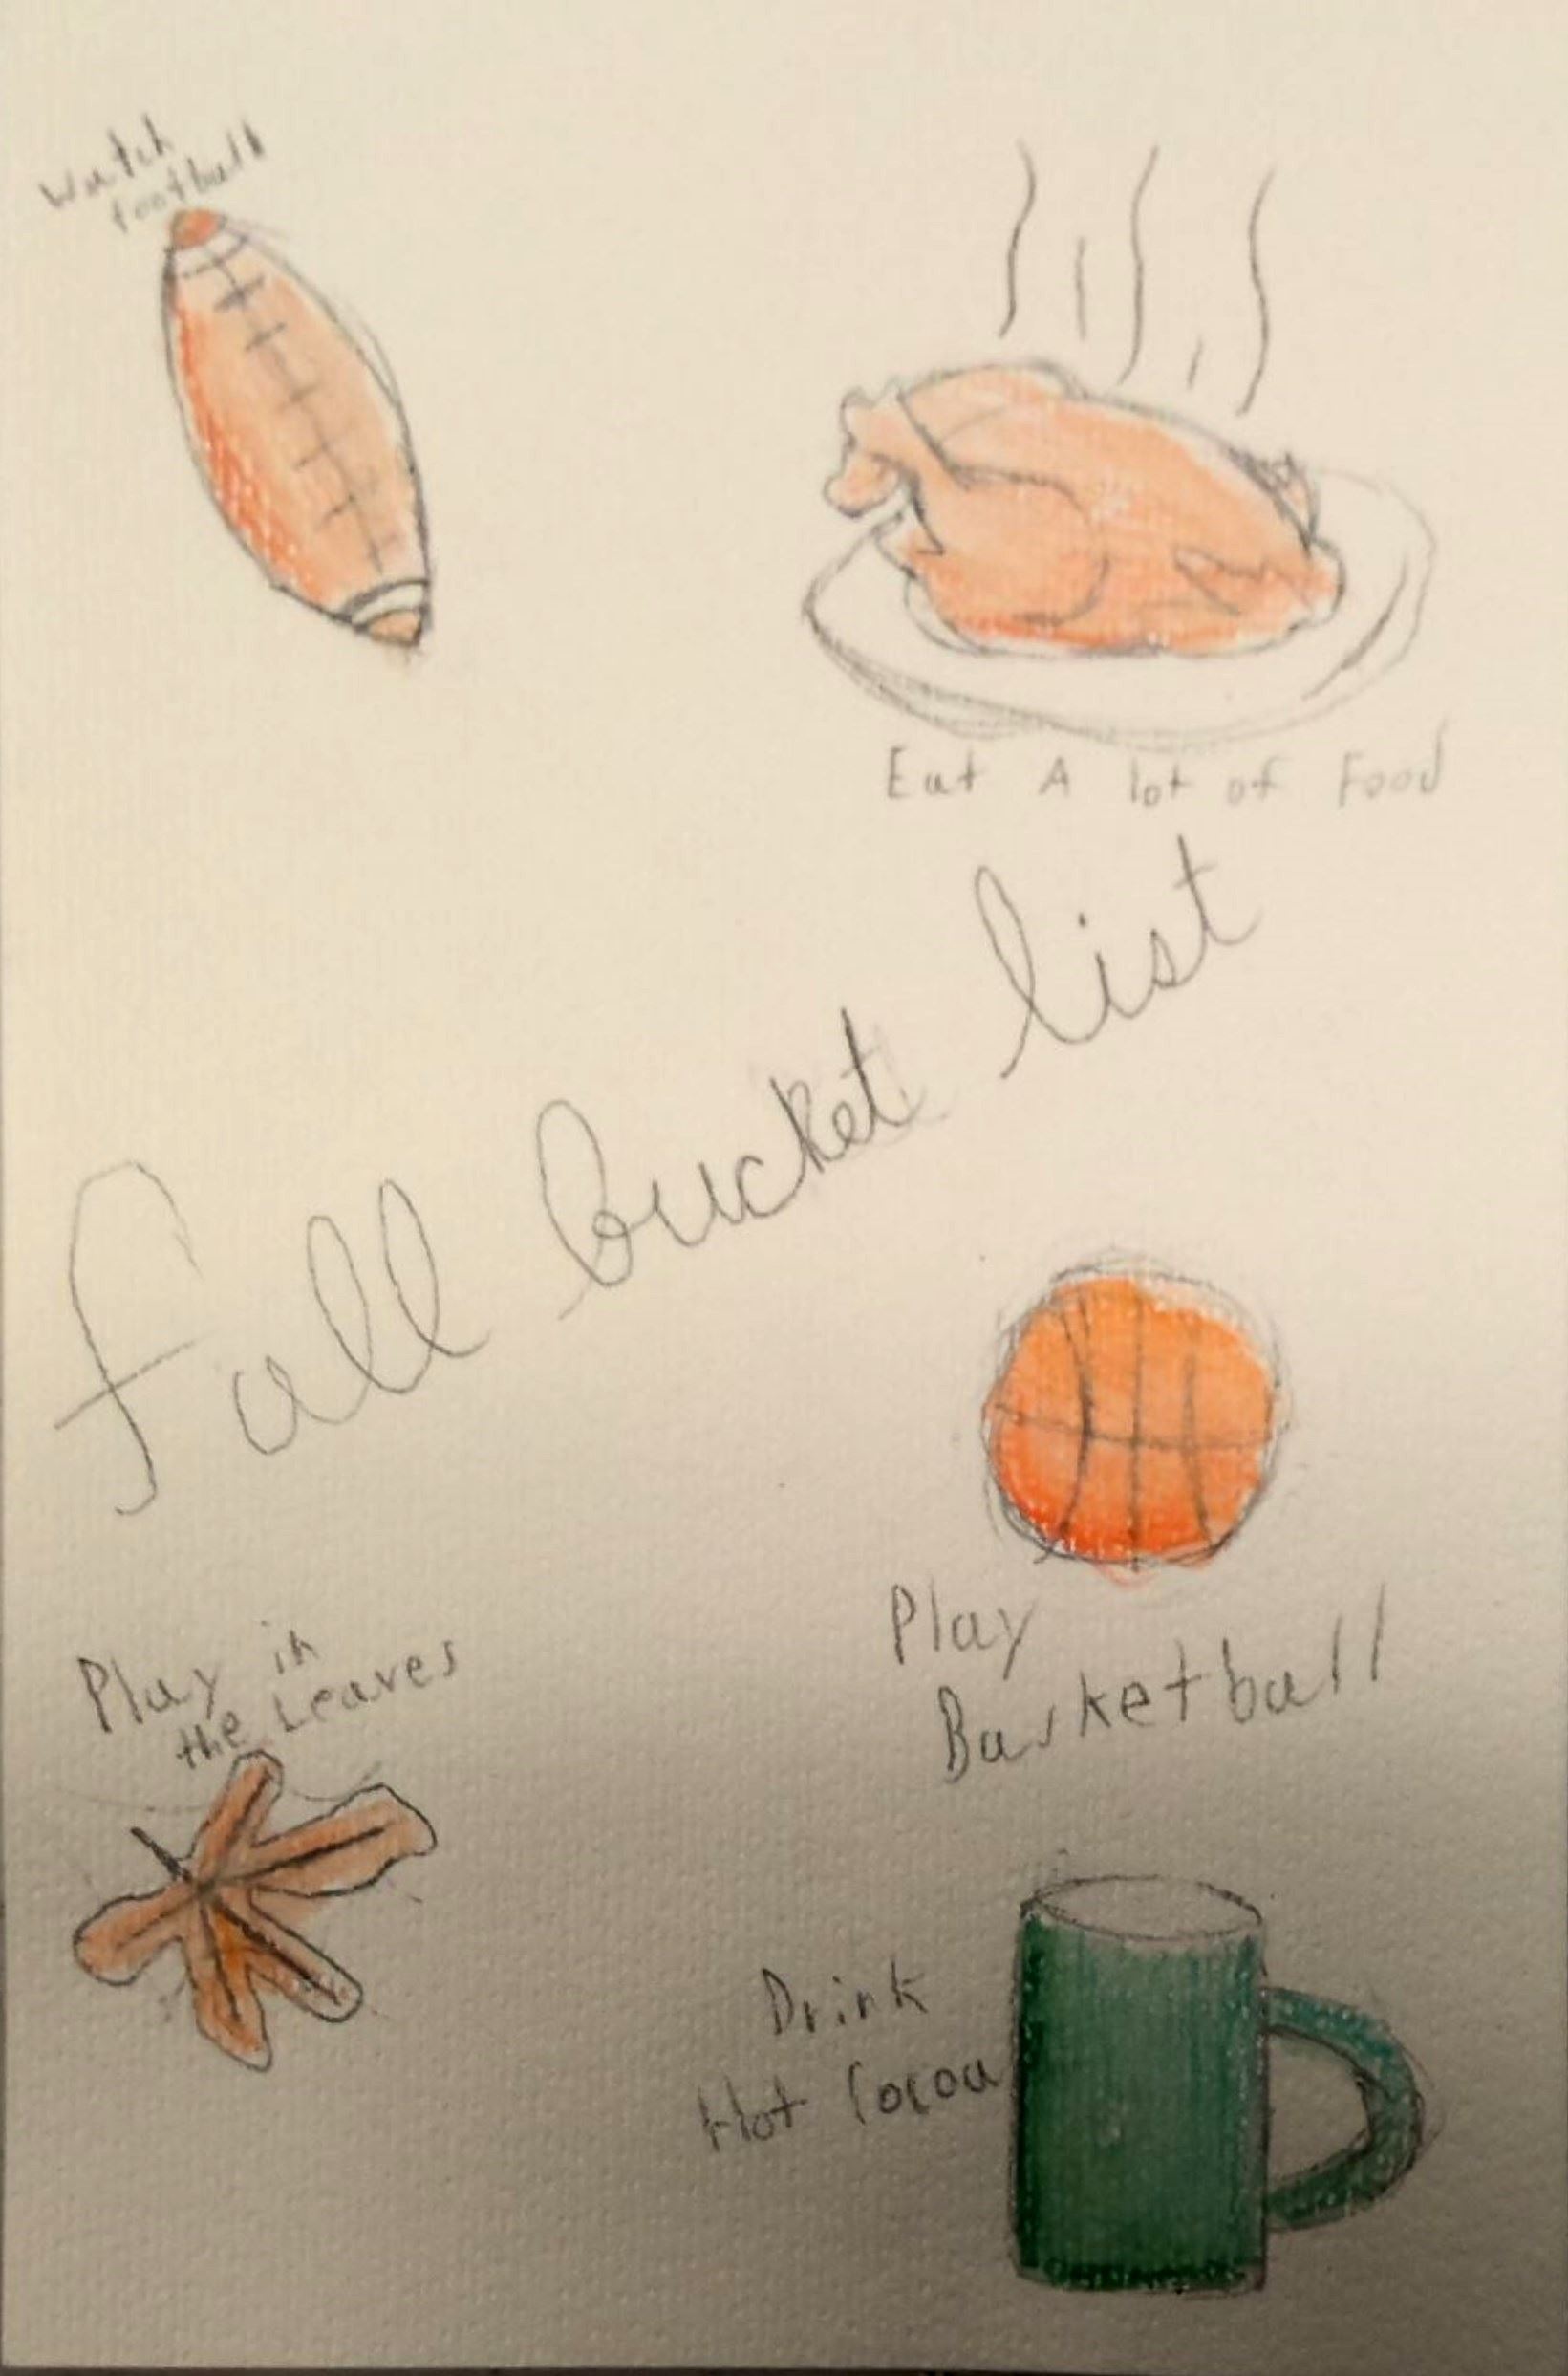 Watch
football
Eat A lot of Food
Fall bucket list
Play
Basketball
Play in
the Leaves
Drink
Hot Cocoa